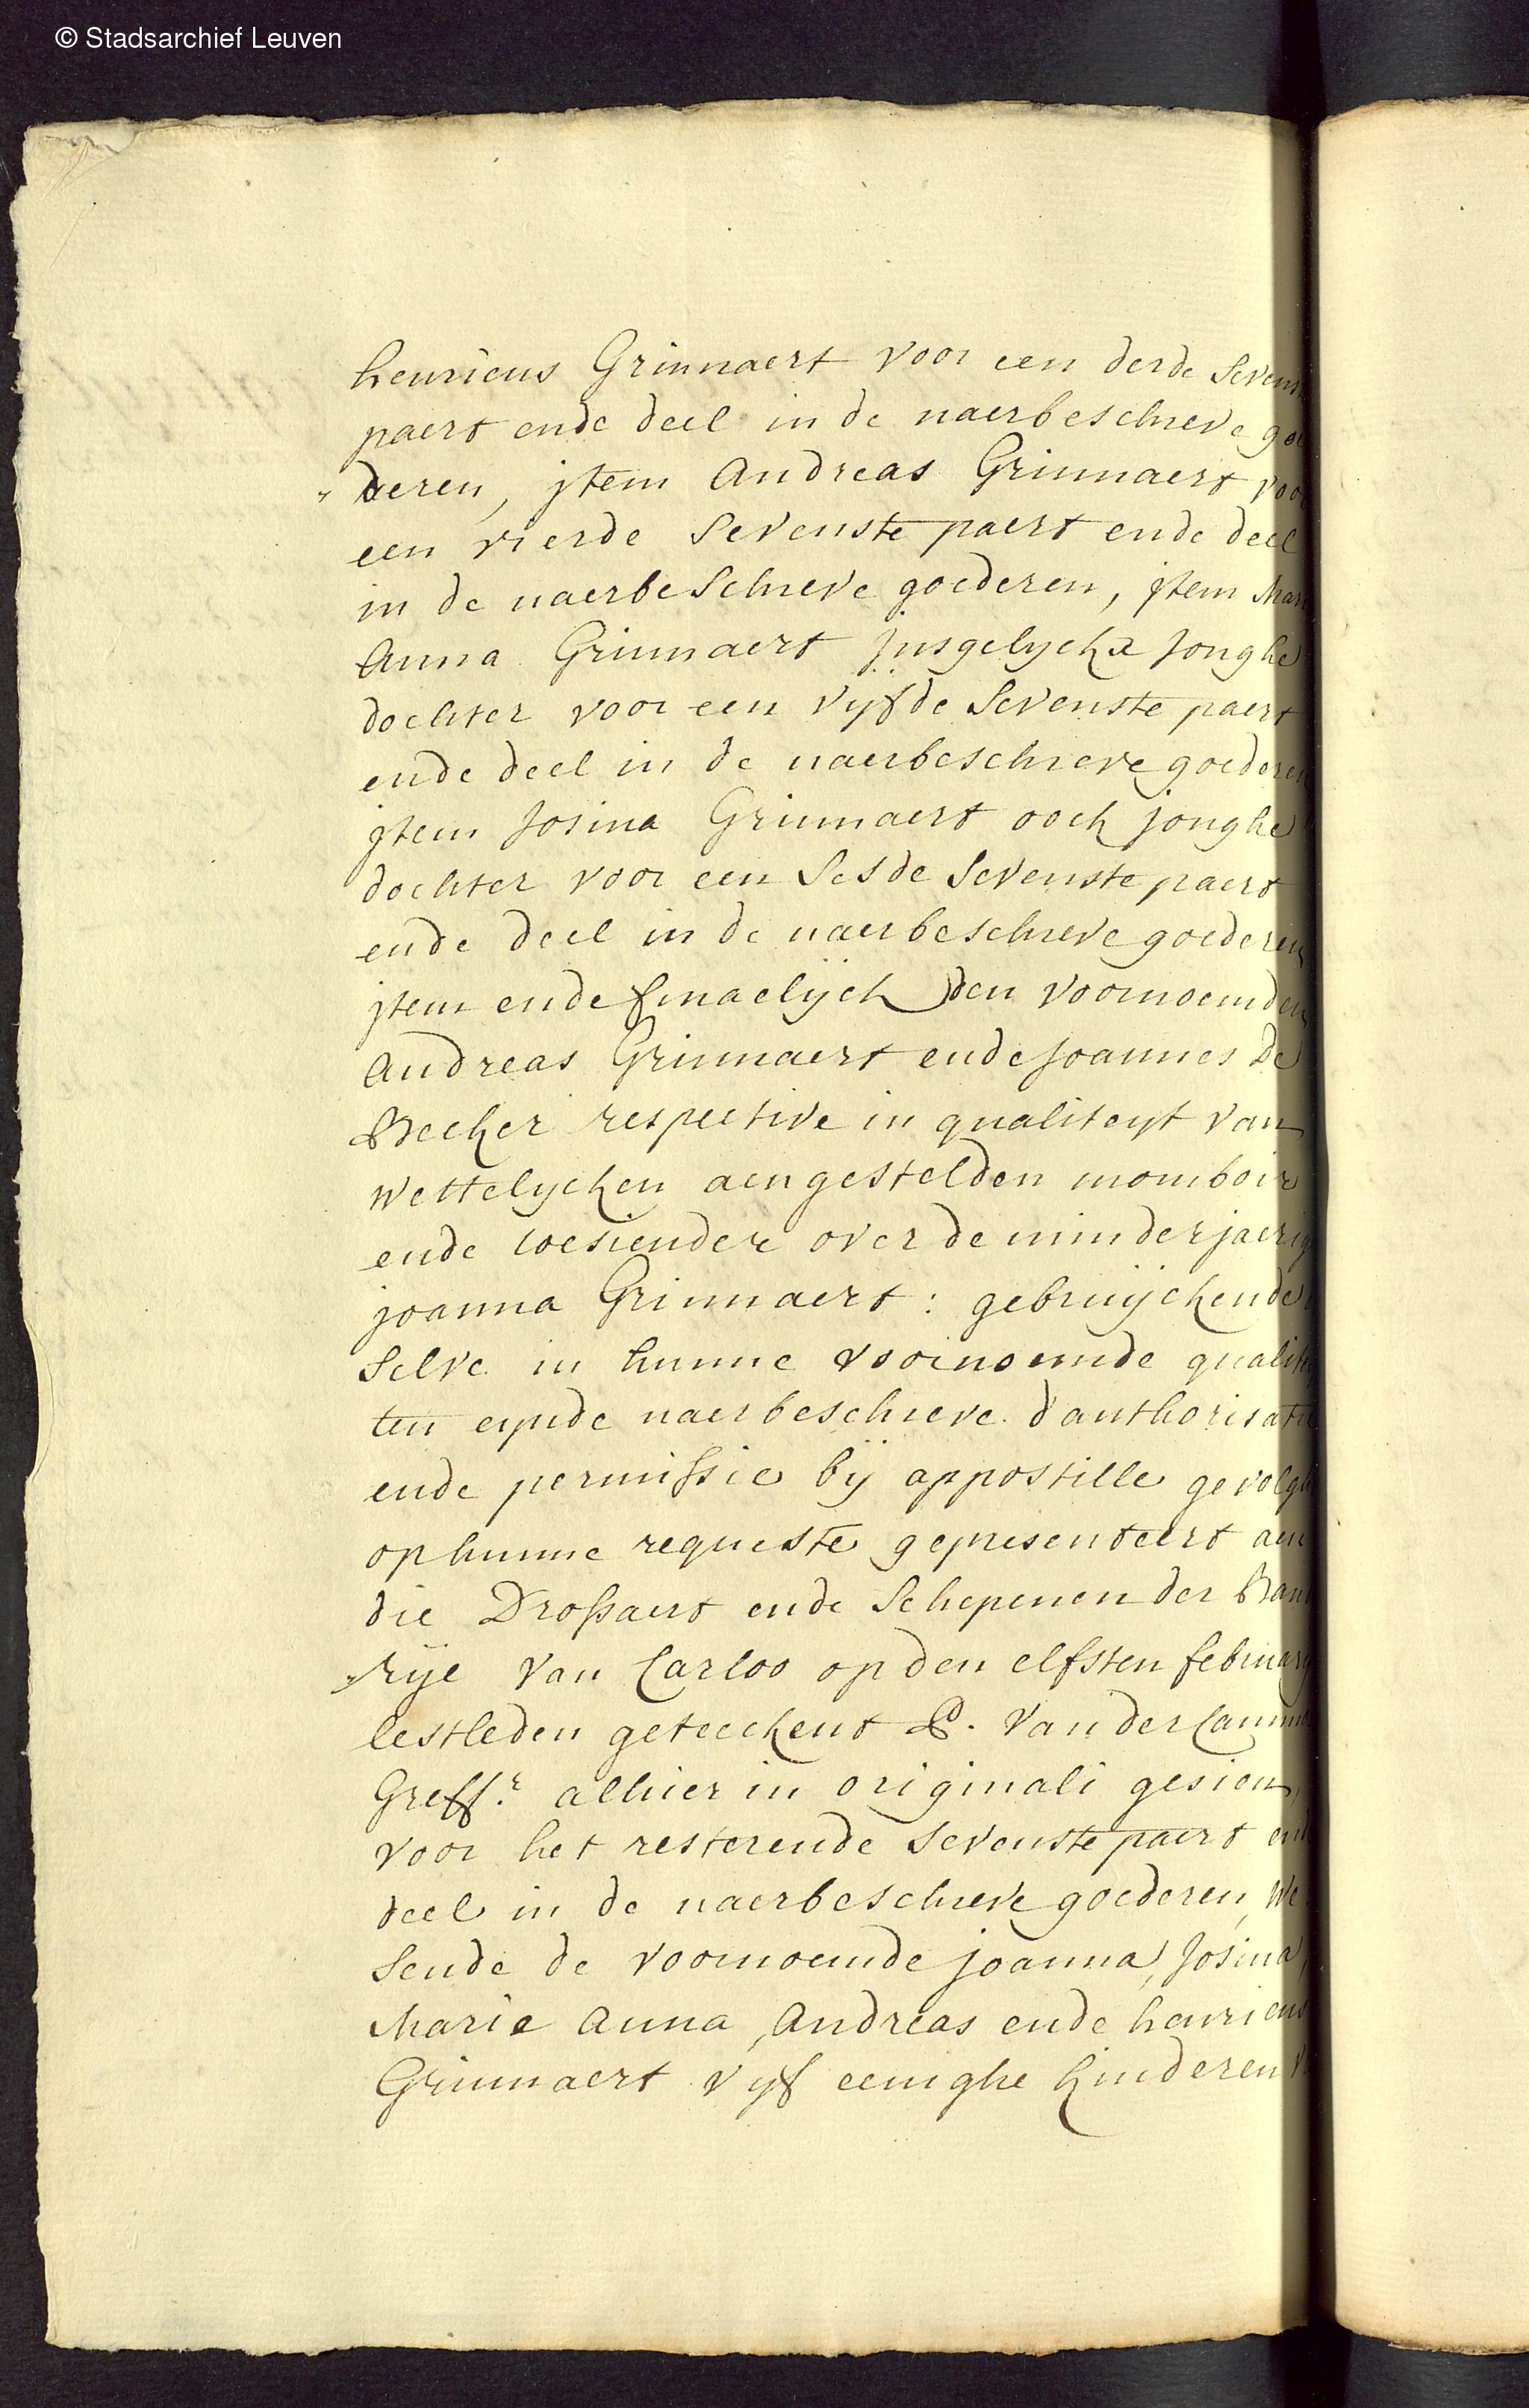 © Stadsarchief Leuven
henricus Grinnaert voor een derde sevens
paert ende deel in de naerbeschreve goe
deren, jtem Andreas Grinnaert voor
een vierde sevenste paert ende deel
in de naerbeschreve goederen, jtem Mari
Anna Grinnaert jnsgelyckx jonghe
dochter voor een vijfde sevenste paert
ende deel in de naerbeschreve goederen
jtem Josina Grinnaert oock jonghe
dochter voor een sesde sevenste paert
ende deel in de naerbeschreve goederen
jtem ende finaelijck den voornoemden
Andreas Grinnaert ende Joannes De
Becker respective in qualiteyt van
wettelycken aengestelden momboir
ende toesiendere over de minderjaerig
joanna Grinnaert: gebruijckende
selve in hunne voornoemde qualit
ten eynde naerbeschreve d'authorisatie
ende permissie bij appostille gevolgh
op hunne requeste gepresenteert aen
die Drossaert ende Schepenen der Ban
rije van Carloo op den elfsten february
lestleden geteeckent P. Van der Camm
Greff.r alhier in originali gesien,
voor het resterende sevenste paert end
deel in de naerbeschreve goederen, We
sende de voornoemde joanna, Josina,
Marie Anna, Andreas ende henricus
Grinnaert vijf eenighe kinderen v